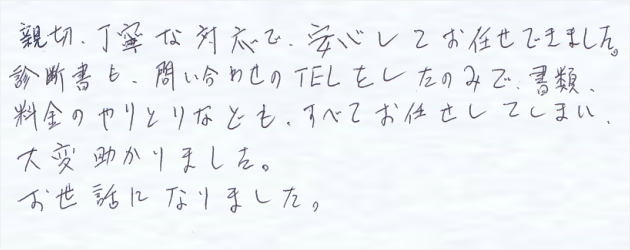 親切、丁寧な対応で、安心してお任せできました。
診断書も、問い合わせのTELをしたのみで、書類、
料金のやりとりなども、すべてお任せしてしまい、
大変助かりました。
お世話になりました。